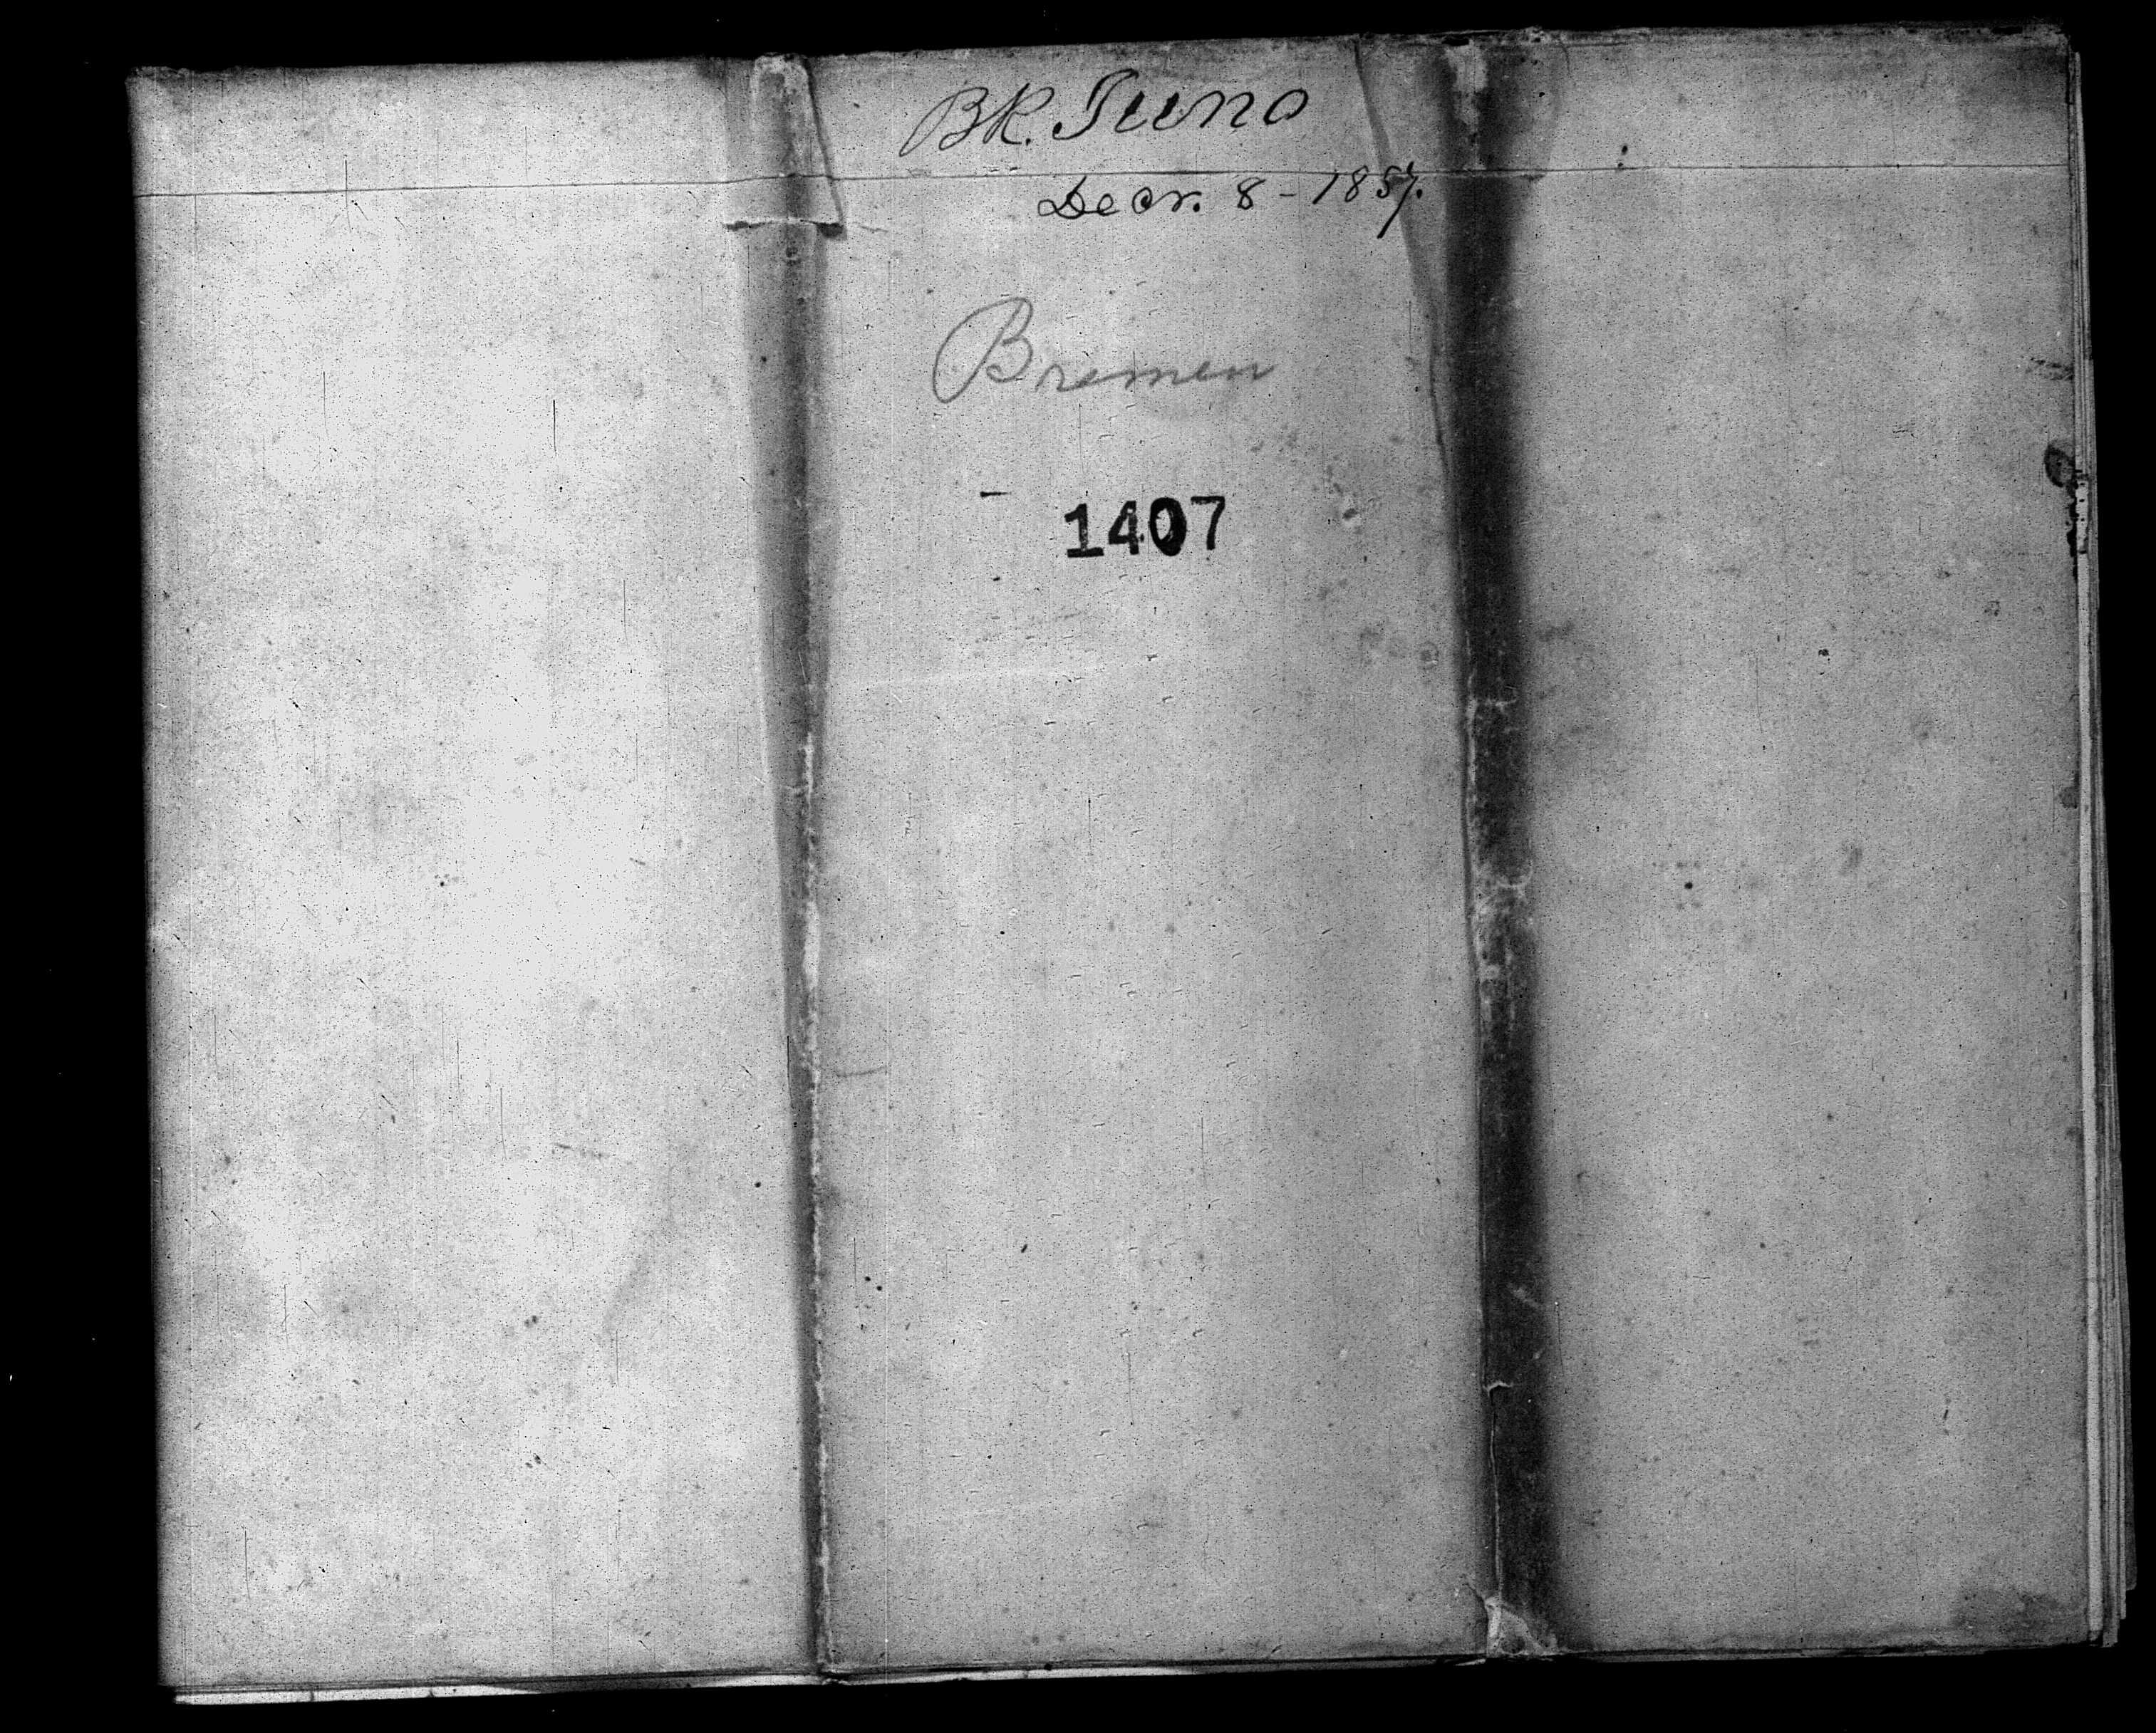 Bk. Juno
Decr. 8 - 1857.
Bremen
1407